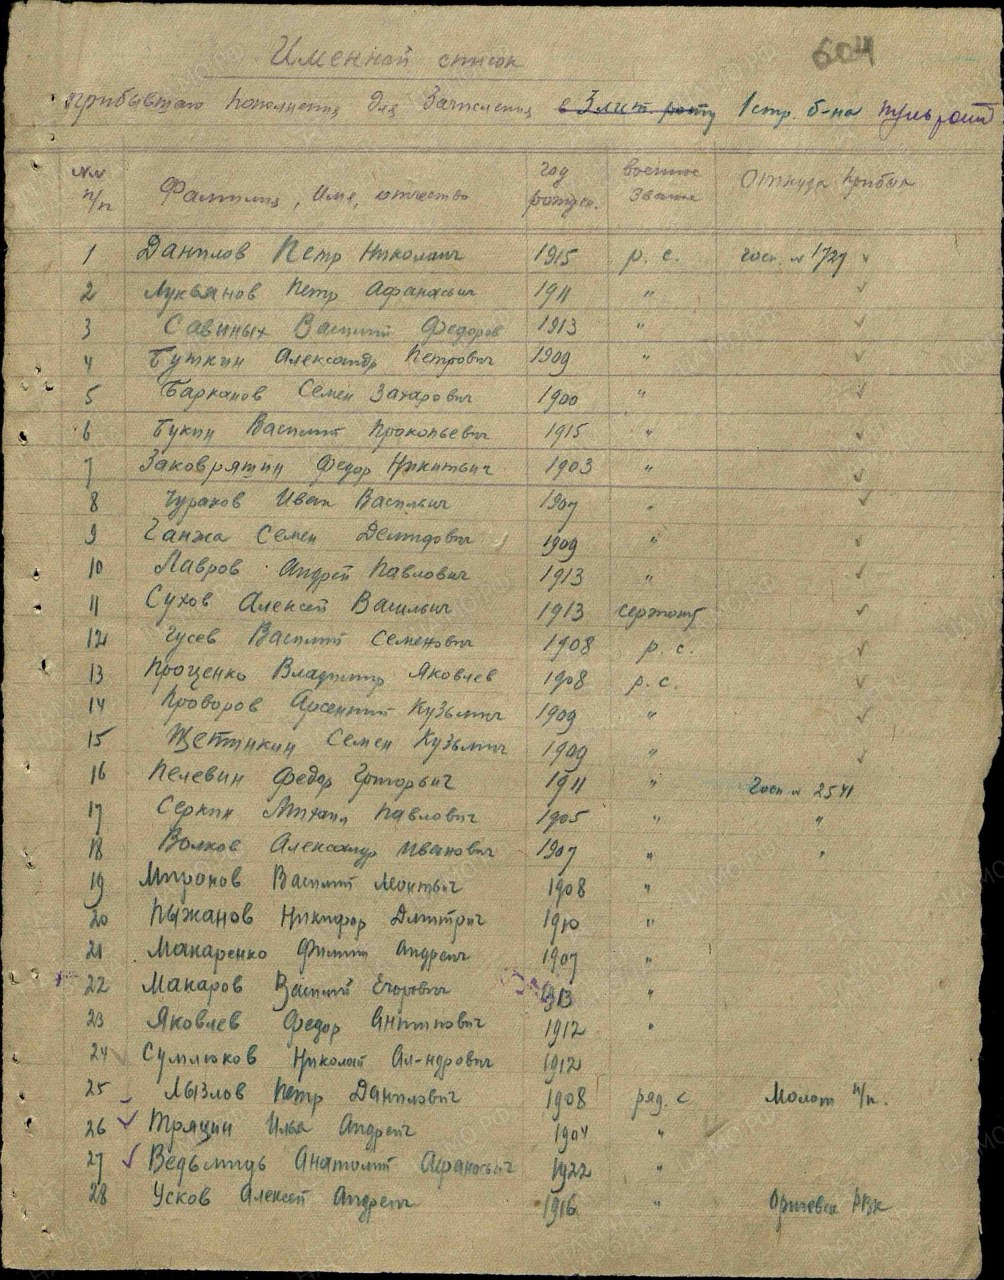 Именной список
604
прибывшего пополнения для зачисления в 3 лит. роту 1 стр. б-на пульрота
№№ п/п Фамилия, имя, отчество год рожден. военное звание Откуда прибыл
1 Данилов Петр Николаич 1915 р. с. госп. № 1727
2 Лукьянов Петр Афанасьич 1911 "
3 Савиных Василий Федоров 1913 "
4 Бушкин Александр Петрович 1909 "
5 Барканов Семен Захарович 1900 "
6 Букин Василий Прокопьевич 1915 "
7 Заковряшин Федор Никитьич 1903 "
8 Чураков Иван Васильич 1907 "
9 Ганжа Семен Демидович 1909 "
10 Лавров Андрей Павлович 1913 "
11 Сухов Алексей Васильич 1913 сержант
12 Гусев Василий Семенович 1908 р. с.
13 Проценко Владимир Яковлев 1908 р. с.
14 Проворов Арсентий Кузьмич 1909 "
15 Щетинкин Семен Кузьмич 1909 "
16 Пелевин Федор Григорьич 1911 " Госп № 2541
17 Серкин Михаил Павлович 1905 " "
18 Волков Александр Иванович 1907 " "
19 Миронов Василий Леонтьич 1908 "
20 Пыжанов Никифор Дмитрич 1910 "
21 Макаренко Филипп Андреич 1907 "
22 Макаров Василий Егорович 1913 "
23 Яковлев Федор Антипович 1912 "
24 Сумлюков Николай Ал-ндрович 1912
25 Лызлов Петр Данилович 1908 ряд. с. Молот п/п.
26 Тряцин Илья Андреич 1904 "
27 Ведьмидь Анатолий Афанасьич 1922 "
28 Усков Алексей Андреич 1916 " Оричевск РВК